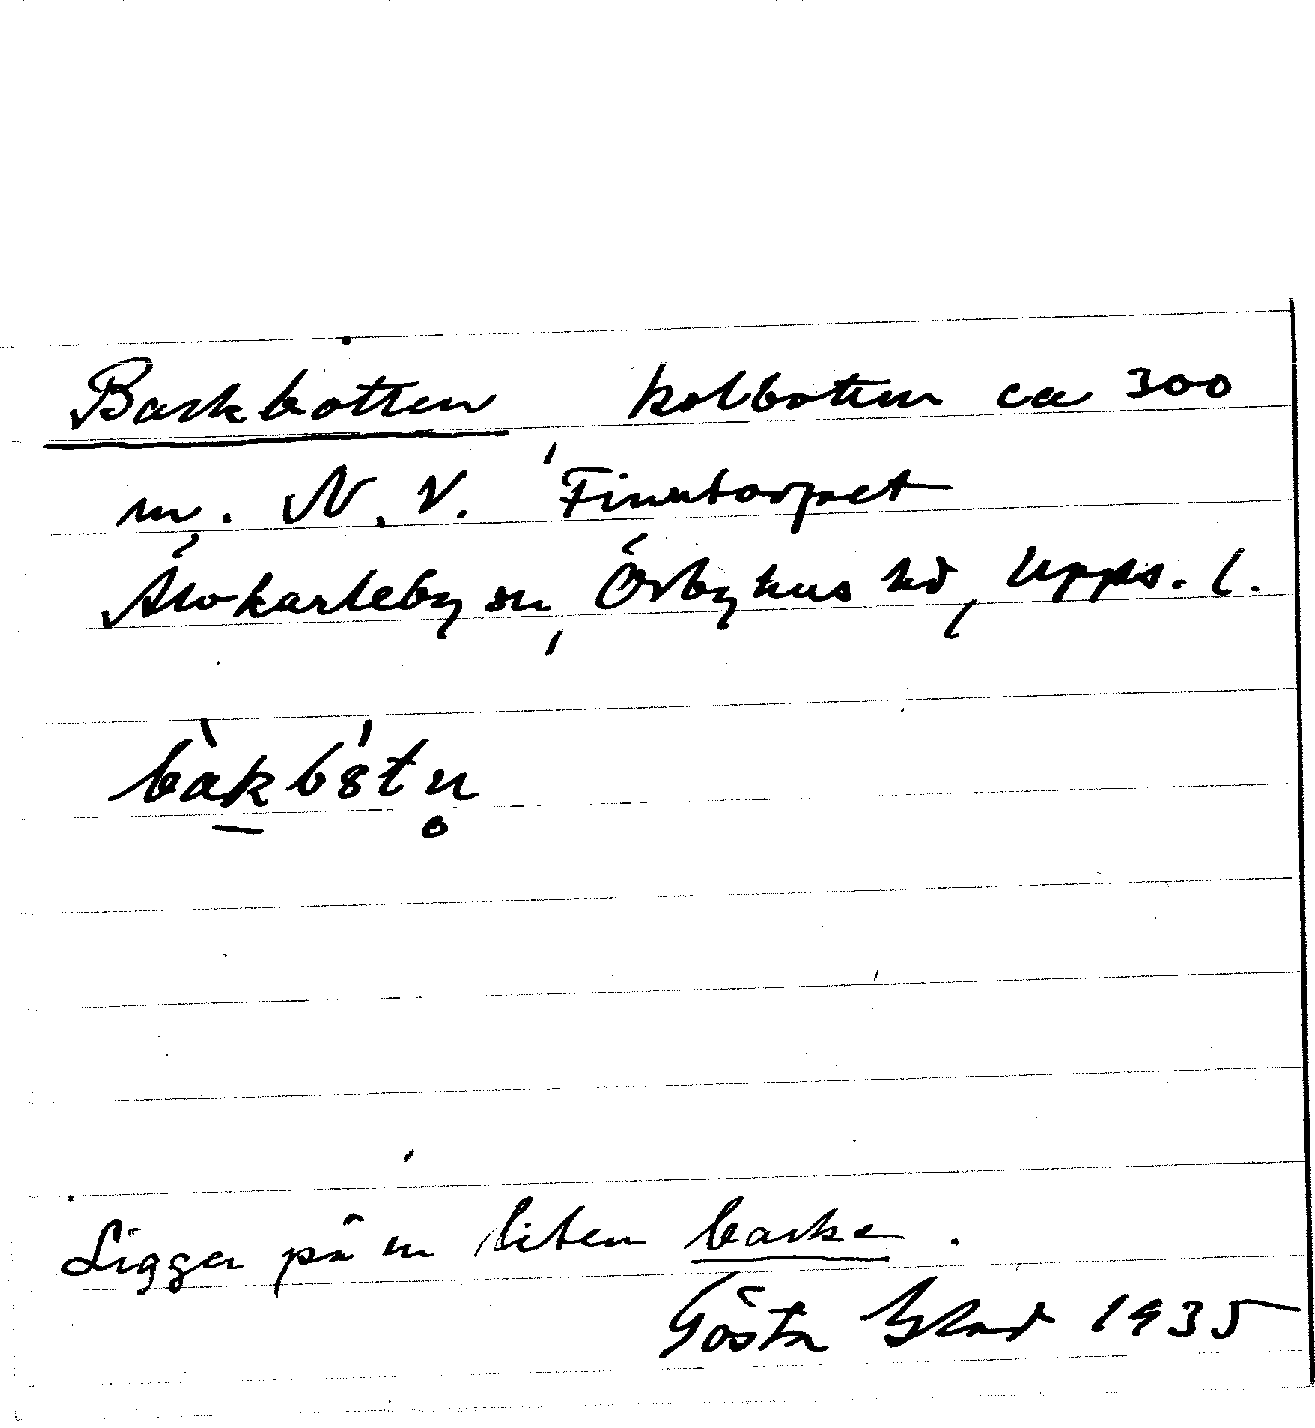 Backbotten kolbotten ca 300
m. N. V. Finntorpet
Älvkarleby sn, Örbyhus hd, Upps. l.
bàkbótn̥
Ligger på en liten backe.
Gösta Blad 1935